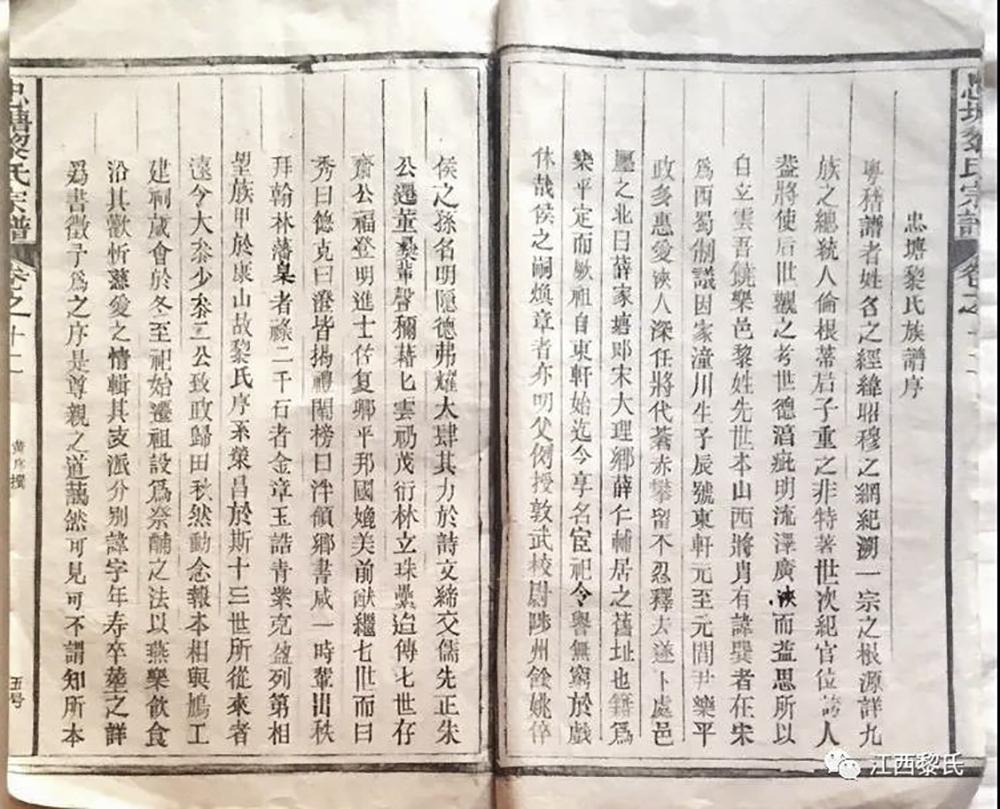 忠塘黎氏宗譜
卷之十一
忠塘黎氏族譜序
粵稽譜者姓名之經緯昭穆之綱紀溯一宗之根源詳九
族之總統人倫根蒂后子重之非特著世次紀官位誇人
葢將使后世觀之考世德滔疵明流澤廣浹而益思所以
自立雲吾饒樂邑黎姓先世本山西將肖有諱巽者在宋
爲西蜀制議因家潼川生子辰號東軒元至元間尹樂平
政多惠愛浹人深任將代蒼赤攀留不忍釋去遂卜處邑
治之北曰薛家塘卽宋大理鄉薛仁輔居之舊址也籍爲
樂平定而厥祖自東軒始迄今享名宦祀令譽無窮於戲
休哉侯之嗣煥章者亦明父例授敦武校尉陟州餘姚倅
侯之孫名明隠德弗耀大肆其力於詩文締交儒先正朱
公遷董彝軰聲彌藉匕雲礽茂衍林立珠纍迨傳七世存
齋公福登明進士僉复卿平邦國媲美前猷繼七世而曰
秀曰德克曰澄皆揭禮闈榜曰泮領鄉書咸一時軰出秩
拜翰林藩臬者祿二千石者金章玉誥青業克盈列第相
望族甲於康山故黎氏序系榮昌於斯十三世所從來者
遠今大叅少叅二公致政歸田秋然動念報本相與鳩工
建祠歲會於冬至祀始遷祖設爲祭酺之法以燕樂飲食
沿其歡忻慈愛之情輯其支派分别諱字年寿卒塟之詳
爲書徵予爲之序是尊親之道藹然可見可不謂知所本
忠塘黎氏宗譜
卷之十一
黄序撰
五号
江西黎氏